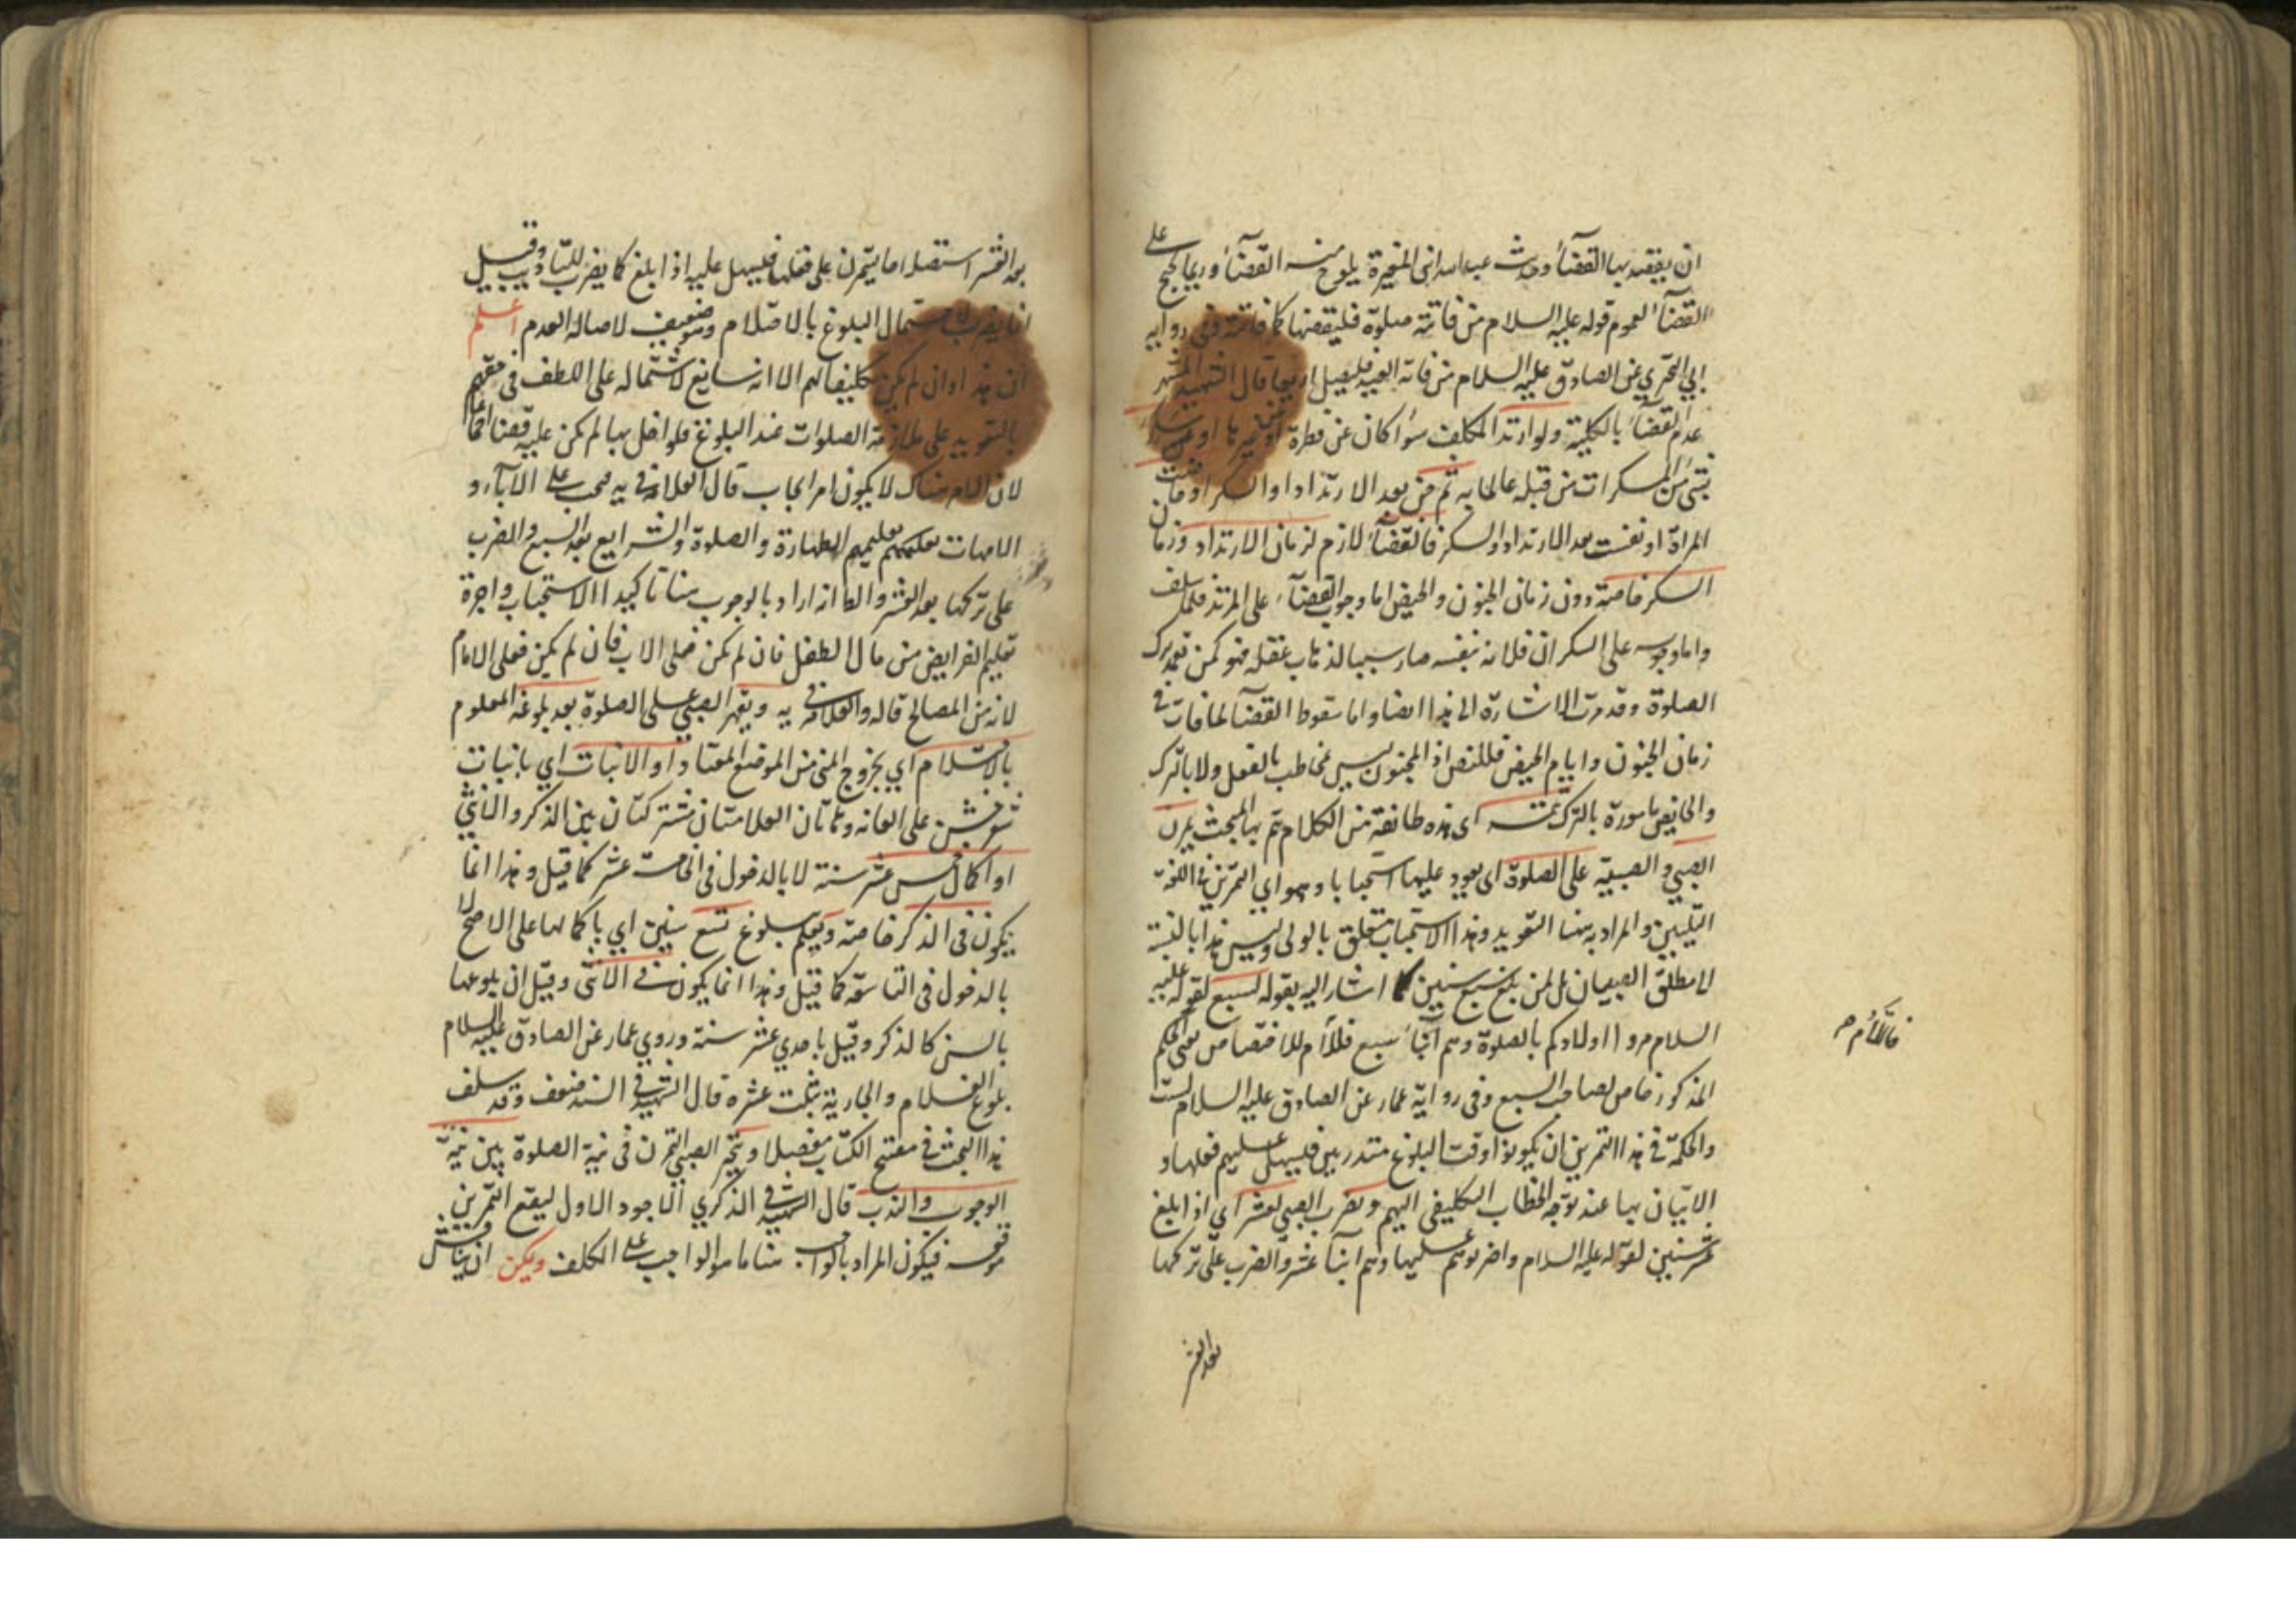 ان يقصد بها القضآء وحديث عبد الله بن المغيرة يلوح منه القضآء وربما يحتج على
القضآء لعموم قوله عليه السلام من فاتته صلوة فليقضها كما فاتته وفي رواية
ابي البختري عن الصادق عليه السلام من فاته العيد فليصل اربعا قال الشهيد المشهور
عدم القضآء بالكلية ولو ارتد المكلف سوآء كان عن فطرة او غيرها او سكر
بشئ من المسكرات من قبله عالما به ثم جن بعد الارتداد او السكر او حاضت
المرأة او نفست بعد الارتداد والسكر فالقضآء لازم لزمان الارتداد وزمان
السكر خاصة دون زمان الجنون والحيض اما وجوب القضآء على المرتد فلما سلف
واما وجوبه على السكران فلانه بنفسه صار سببا لذهاب عقله فهو كمن تعمد ترك
الصلوة وقد مرت الاشارة الى هذا ايضا واما سقوط القضآء لما فات في
زمان الجنون وايام الحيض فللنص اذ المجنون ليس مخاطب بالفعل ولا بالترك
والحائض مامورة بالترك تتمة اى هذه طائفة من الكلام يتم بها المبحث يمرن
الصبي والصبية على الصلوة اى يعود عليها استحبابا وهو اي التمرين في اللغة
التليين والمراد به هنا التعويد وهذا الاستحباب متعلق بالولى وليس هذا بالنسبة
لا مطلق الصبيان بل لمن بلغ سبع سنين كما اشار اليه بقوله لسبع لقوله عليه
السلام مروا اولادكم بالصلوة وهم ابنآء سبع فاللام للاختصاص يعنى الحكم
المذكور خاص لصاحب السبع وفى رواية عمار عن الصادق عليه السلام لست
والحكمة في هذا التمرين ان يكونوا وقت البلوغ متدربين فيسهل عليهم فعلها و
الاتيان بها عند توجه الخطاب التكليفى اليهم ويضرب الصبي لعشر اى اذا بلغ
عشر سنين لقوله عليه السلام واضربوهم عليها وهم ابنآء عشر والضرب على تركها
بعد العشر
بعد العشر استصلاحا ليتمرن على فعلها فيسهل عليه اذا بلغ كما يضرب للتاديب وقيل
انما يضرب لاحتمال البلوغ بالاحتلام وهو ضعيف لاصالة العدم اعلم
ان هذا وان لم يكن تكليفا لهم الا انه سايغ لاشتماله على اللطف في حقهم
بالتعويد على ملازمة الصلوات عند البلوغ فلو اخل بها لم يكن عليه قضاؤها
لان الامر هناك لا يكون امر ايجاب قال العلامة في يه يجب على الابآء و
الامهات تعليمهم الطهارة والصلوة والشرايع بعد السبع والضرب
على تركها بعد العشر والظاهر اراد بالوجوب هنا تاكيدا الاستحباب واجرة
تعليم الفرايض من مال الطفل فان لم يكن فعلى الاب فان لم يكن فعلى الامام
لانه من المصالح قاله العلامة في يه ويقهر الصبي على الصلوة بعد بلوغه المعلوم
بالاحتلام اي بخروج المنى من الموضع المعتاد او الانبات اي بانبات
شعر خشن على العانه وهاتان العلامتان مشتركتان بين الذكر والانثى
او اكمال خمس عشر سنة لا بالدخول في الخامسة عشر كما قيل وهذا انما
يكون فى الذكر خاصة ويعلم ببلوغ تسع سنين اي باكمالها على الاصح لا
بالدخول فى التاسعة كما قيل وهذا انما يكون في الانثى وقيل ان بلوغها
بالسن كالذكر وقيل باحدي عشر سنة وروي عمار عن الصادق عليه السلام
بلوغ الغلام والجارية بثلث عشره قال الشهيد فى السند ضعف وقد سلف
هذا البحث فى مفتتح الكتاب مفصلا ويتخير الصبي المتمرن فى نية الصلوة بين نية
الوجوب والندب قال الشهيد في الذكري الاجود الاول ليقع التمرين
موقعه فيكون المراد بالواجب هنا ما هو الواجب على المكلف ويمكن ان يناقش